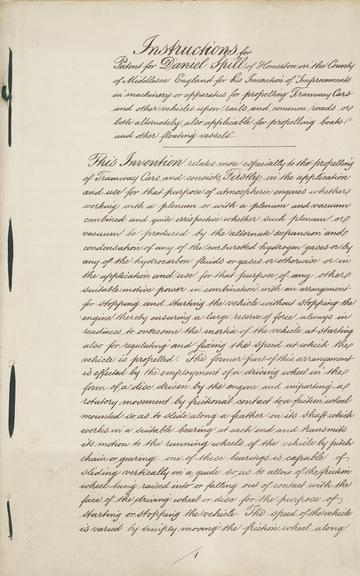 Instructions for
Patent for Daniel Spill of Homerton in the County
of Middlesex England for his Invention of Improvements
in machinery or apparatus for propelling Tramway Cars
and other vehicles upon rails and common roads or
both alternately also applicable for propelling boats
and other floating vessels.
This Invention relates more especially to the propelling
of Tramway Cars and consists, Firstly, in the application
and use for that purpose of atmospheric engines whether
working with a plenum or with a plenum and vacuum
combined and quite irrespective whether such plenum or
vacuum be produced by the alternate expansion and
condensation of any of the carburetted hydrogen gases or by
any of the hydrocarbon fluids or gases or otherwise or in
the application and use for that purpose of any other
suitable motive power in combination with an arrangement
for stopping and starting the vehicle without stopping the
engine thereby ensuring a large reserve of force always in
readiness to overcome the inertia of the vehicle at starting
also for regulating and fixing the speed at which the
vehicle is propelled. The former part of this arrangement
is effected by the employment of a driving wheel in the
form of a disc driven by the engine and imparting a
rotatory movement by frictional contact to a friction wheel
mounted so as to slide along a feather in its shaft which
works in a suitable bearing at each end and transmits
its motion to the running wheels of the vehicle by pitch
chain or gearing one of these bearings is capable of
sliding vertically in a guide so as to allow of the friction
wheel being raised into or falling out of contact with the
face of the driving wheel or disc for the purpose of
starting or stopping the vehicle The speed of the vehicle
is varied by simply moving the friction wheel along
1